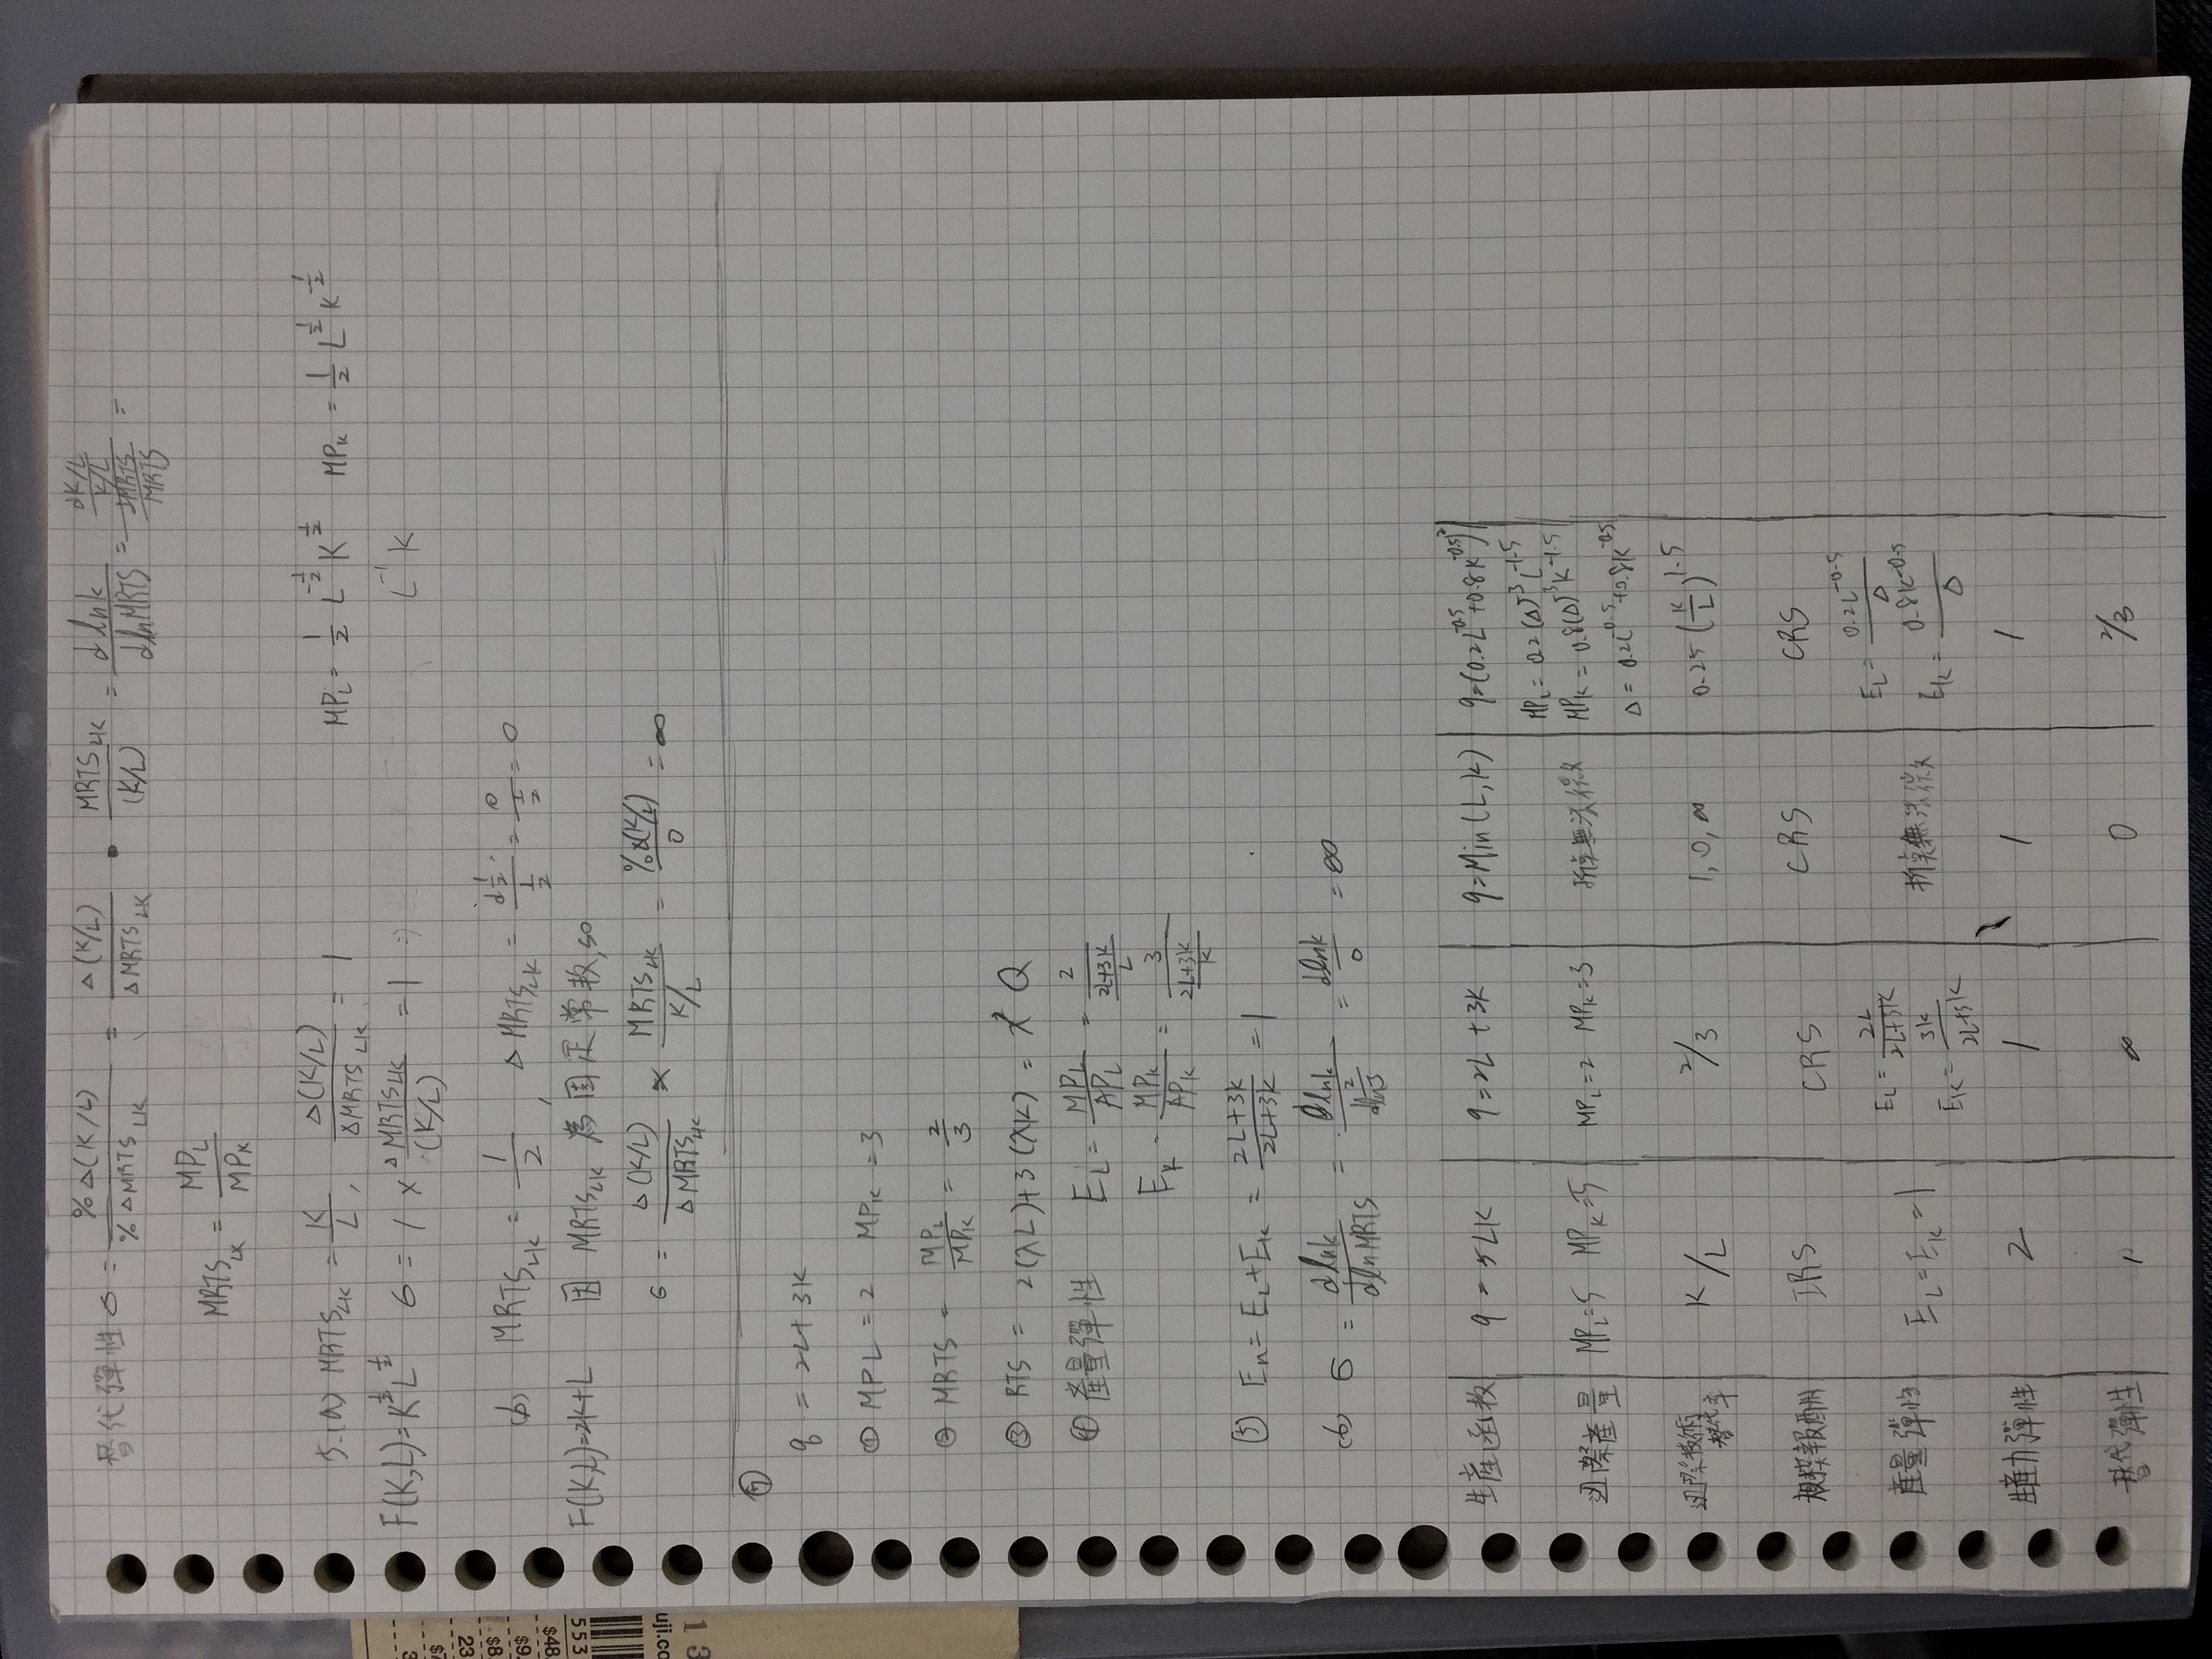 替代彈性 σ = %Δ(K/L) / %ΔMRTS_LK = Δ(K/L) / ΔMRTS_LK • MRTS_LK / (K/L) = dlnk / dlnMRTS = (dK/L / K/L) / (dMRTS / MRTS) =
MRTS_LK = MP_L / MP_K
5.(a) MRTS_LK = K/L , Δ(K/L) / ΔMRTS_LK = 1 MP_L = 1/2 L^-1/2 K^1/2 MP_K = 1/2 L^1/2 K^-1/2
F(K,L)=K^1/2 L^1/2 σ = 1 × ΔMRTS_LK / (K/L) = 1 L^-1 K
(b) MRTS_LK = 1/2 , ΔMRTS_LK = d1/2 / 1/2 = 0 / 1/2 = 0
F(K,L)=2K+L 因 MRTS_LK 為固定常数,so
σ = Δ(K/L) / ΔMRTS_LK × MRTS_LK / K/L = %Δ(K/L) / 0 = ∞
⑦
q = 2L+3K
① MPL = 2 MP_K = 3
② MRTS = MP_L / MP_K = 2/3
③ RTS = 2(λL)+3(λK) = λ Q
④ 產量彈性 E_L = MP_L / AP_L = 2 / (2L+3K / L)
E_K = MP_K / AP_K = 3 / (2L+3K / K)
⑤ En = E_L+E_K = 2L+3K / 2L+3K = 1
(6) σ = dlnk / dlnMRTS = dlnk / dln2/3 = dlnk / 0 = ∞
生產函数 q = 5LK q=2L+3K q=Min(L,K) q=(0.2L^-0.5+0.8K^-0.5)^2
MP_L = 0.2(Δ)^-3 L^-1.5
边際產量 MP_L=5 MP_K=5 MP_L=2 MP_K=3 折点無法微分 MP_K = 0.8(Δ)^-3 K^-1.5
Δ = 0.2L^-0.5+0.8K^-0.5
边際技術替代率 K/L 2/3 1, 0, ∞ 0.25 (K/L)^1.5
規模報酬 IRS CRS CRS CRS
產量彈性 E_L=E_K=1 E_L = 2L / 2L+3K 折点無法微分 E_L = 0.2L^-0.5 / Δ
E_K = 3K / 2L+3K E_K = 0.8K^-0.5 / Δ
生產力彈性 2 1 1 1
替代彈性 1 ∞ 0 2/3